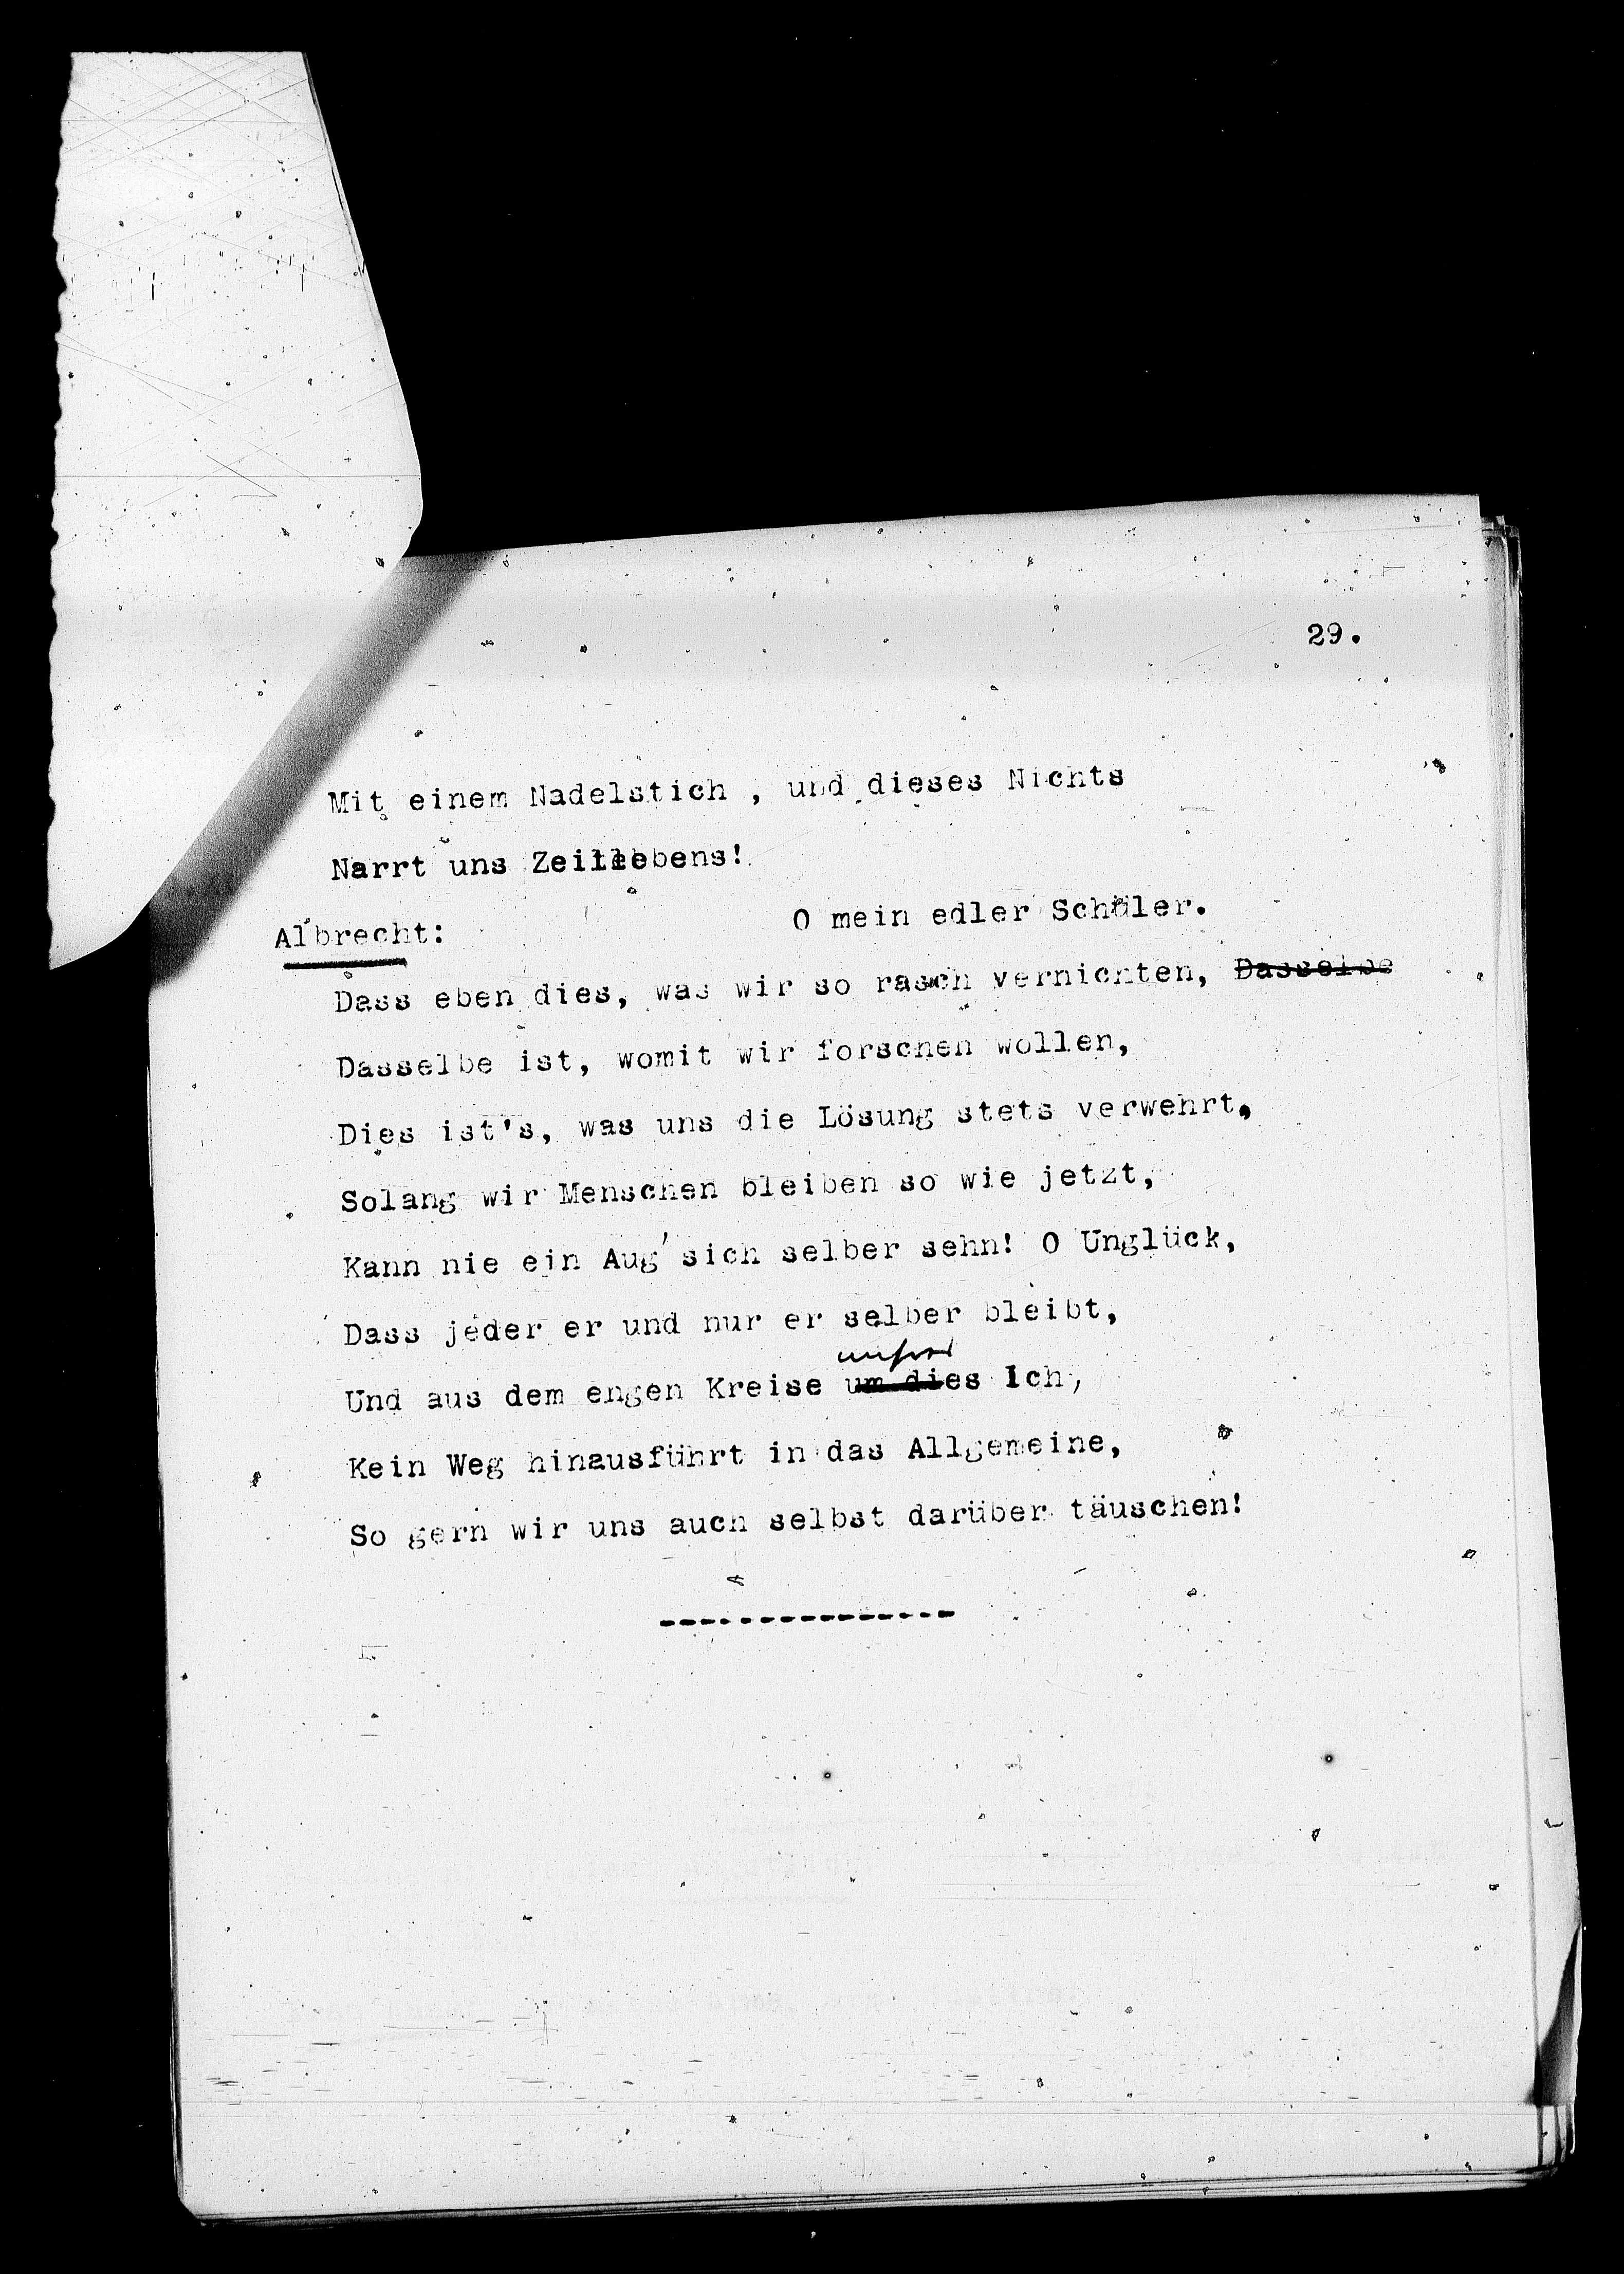 29.
Mit einem Nadelstich , und dieses Nichts
Narrt uns Zeitlebens!
Albrecht: O mein edler Schüler.
Dass eben dies, was wir so rasch vernichten, Dasselbe
Dasselbe ist, womit wir forschen wollen,
Dies ist's, was uns die Lösung stets verwehrt,
Solang wir Menschen bleiben so wie jetzt,
Kann nie ein Aug' sich selber sehn! O Unglück,
Dass jeder er und nur er selber bleibt,
Und aus dem engen Kreise um dies Ich,
Kein Weg hinausführt in das Allgemeine,
So gern wir uns auch selbst darüber täuschen!
---------------